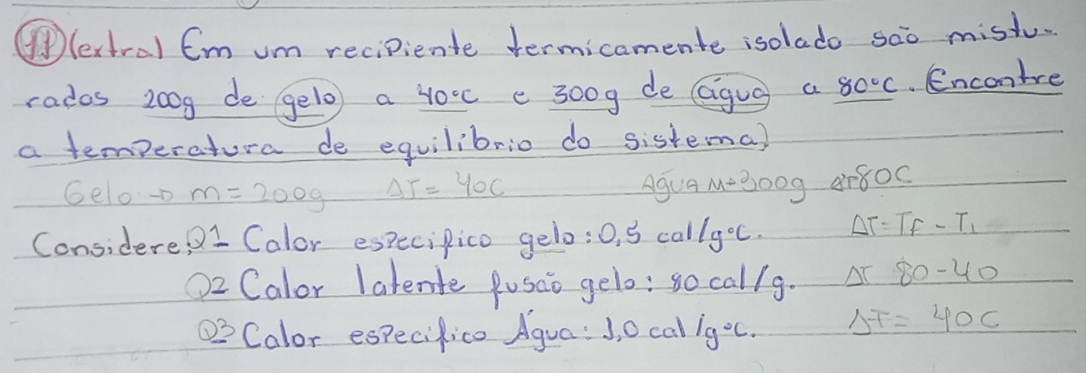 11) (extra) Em um recipiente termicamente isolado são mistu-
rados 200g de gelo a 40°C e 300g de água a 80°C. (Encontre
a temperatura de equilíbrio do sistema)
Gelo → m = 200g ΔT = 40C Água M→300g ΔT80C
Considere: Q1 Calor especifico gelo: 0,5 cal/g°C. ΔT = Tf - Ti
Q2 Calor latente fusão gelo: 80 cal/g. ΔT 80-40
Q3 Calor especifico Água: 1,0 cal/g°C. ΔT = 40C